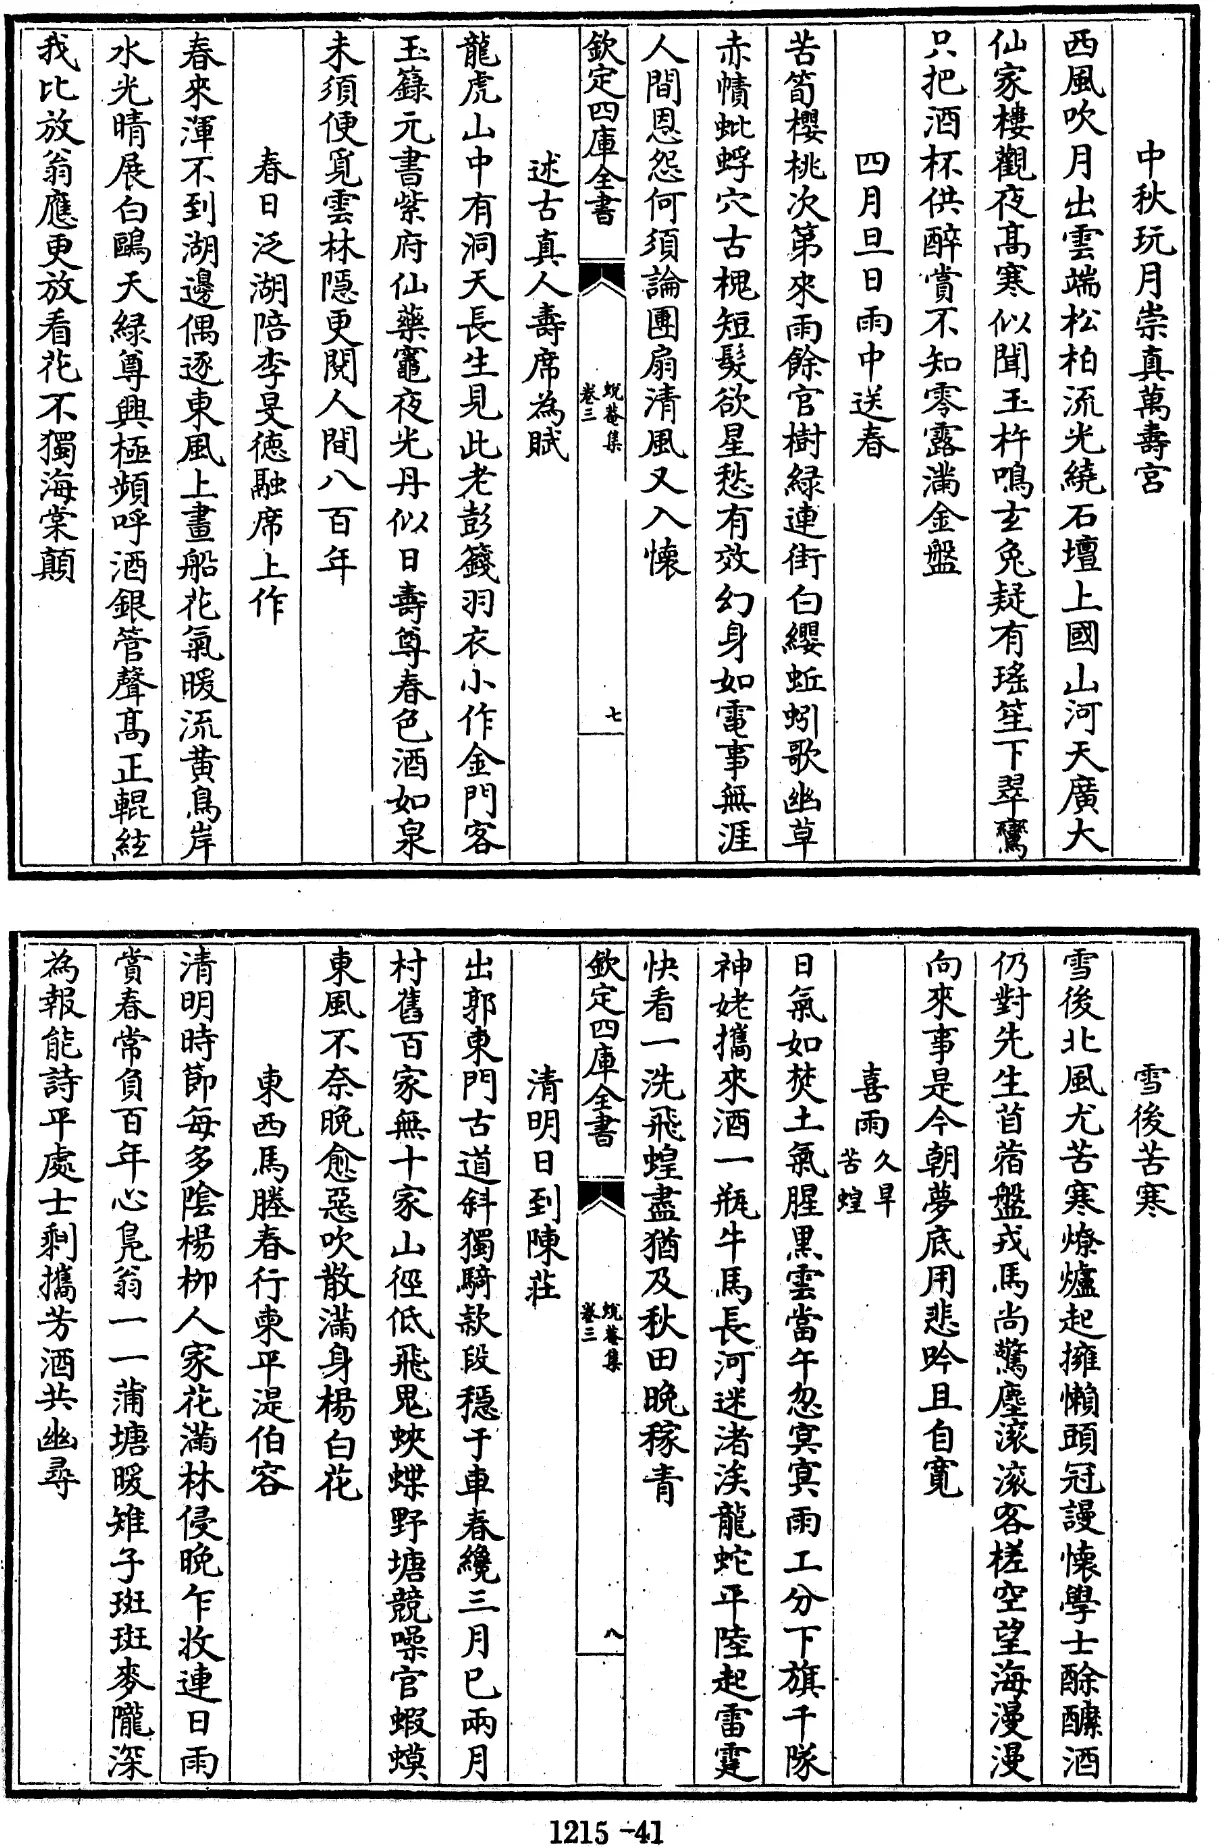 中秋玩月崇真萬壽宮
西風吹月出雲端松柏流光繞石壇上國山河天廣大
仙家樓觀夜髙寒似聞玉杵鳴玄兔疑有瑤笙下翠鸞
只把酒杯供醉賞不知零露滿金盤
四月旦日雨中送春
苦筍櫻桃次第來雨餘官樹緑連街白纓蚯蚓歌幽草
赤幘蚍蜉穴古槐短髪欲星愁有效幻身如電事無涯
人間恩怨何須論團扇清風又入懐
欽定四庫全書
蛻菴集
卷三
七
述古真人壽席為賦
龍虎山中有洞天長生見此老彭籛羽衣小作金門客
玉籙元書紫府仙藥竈夜光丹似日壽尊春色酒如泉
未須便覓雲林隱更閱人間八百年
春日泛湖陪李旻德融席上作
春來渾不到湖邊偶逐東風上畫船花氣暖流黄鳥岸
水光晴展白鷗天緑尊興極頻呼酒銀管聲髙正輥絃
我比放翁應更放看花不獨海棠顛
雪後苦寒
雪後北風尤苦寒燎爐起擁懶頭冠謾懐學士酴醾酒
仍對先生苜蓿盤戎馬尚驚塵滚滚客槎空望海漫漫
向來事是今朝夢底用悲吟且自寛
喜雨久旱苦蝗
日氣如焚土氣腥黒雲當午忽冥冥雨工分下旗千隊
神姥攜來酒一瓶牛馬長河迷渚涘龍蛇平陸起雷霆
快看一洗飛蝗盡猶及秋田晩稼青
欽定四庫全書
蛻菴集
卷三
八
清明日到陳莊
出郭東門古道斜獨騎款段穩于車春纔三月巳兩月
村舊百家無十家山徑低飛鬼蛺蝶野塘競噪官蝦蟆
東風不奈晩愈惡吹散滿身楊白花
東西馬塍春行柬平湜伯容
清明時節每多隂楊柳人家花滿林侵晩乍收連日雨
賞春常負百年心鳬翁一一蒲塘暖雉子斑斑麥隴深
為報能詩平處士剩攜芳酒共幽尋
1215-41